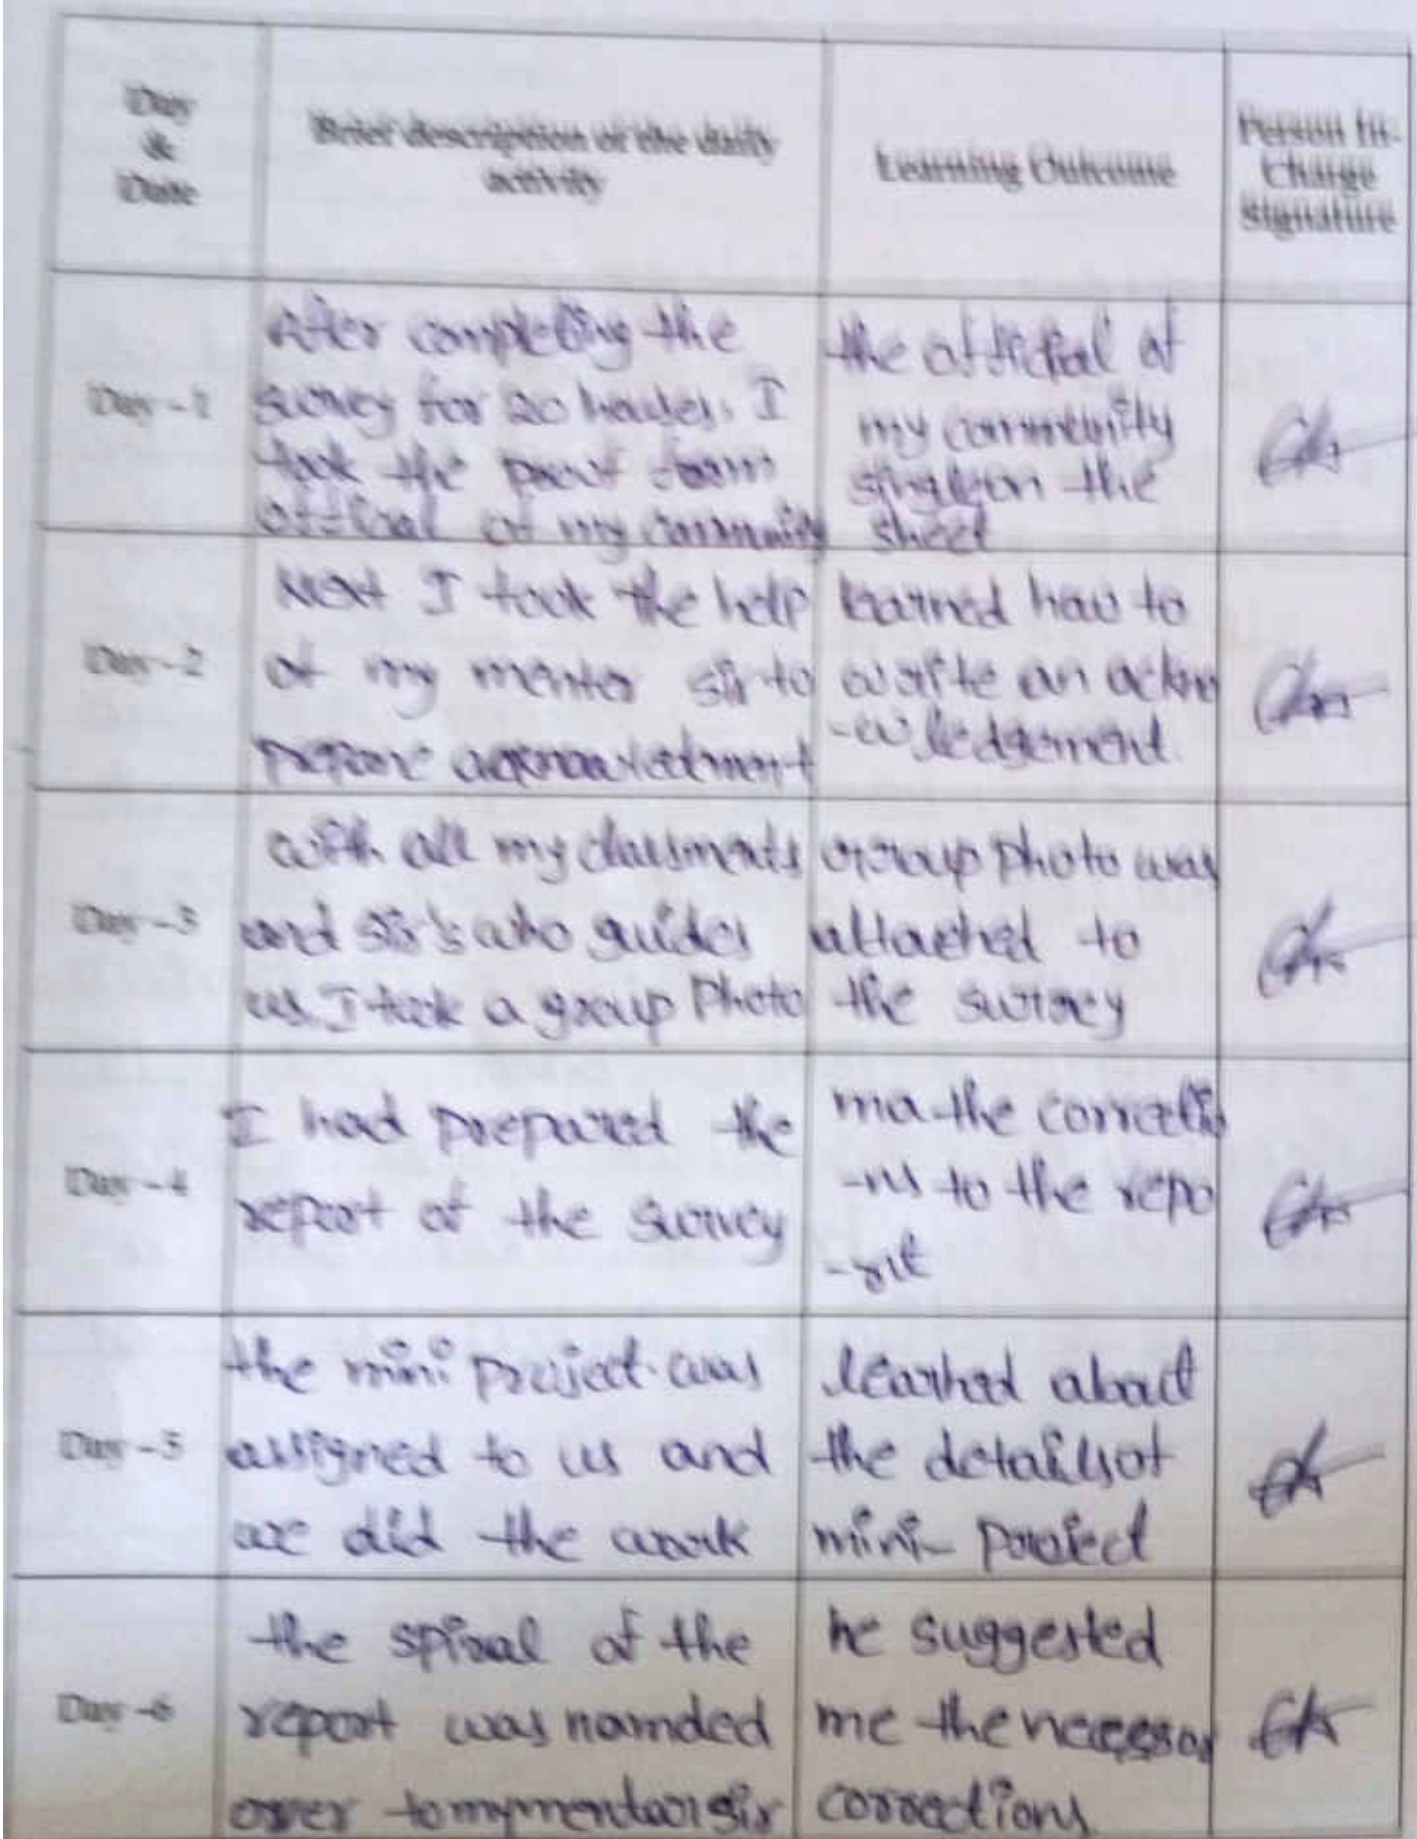 Day
&
Date
Brief description of the daily
activity
Learning Outcome
Person In-
Charge
Signature
Day - 1
After completing the
survey for 20 houses, I
took the proof from
official of my community
the official of
my community
sign on the
sheet
Day - 2
Next I took the help
of my mentor sir to
prepare
learned how to
write an ackno
-wledgement.
Day - 3
with all my
and sir's who guides
us. I took a group Photo
group photo was
attached to
the survey
Day - 4
I had prepared the
report of the survey
ma the correctio
-ns to the repo
-rt
Day - 5
the mini project was
assigned to us and
we did the work
learned about
the details of
mini- project
Day - 6
the spiral of the
report was handed
over to my mentor sir
he suggested
me the necessar
corrections